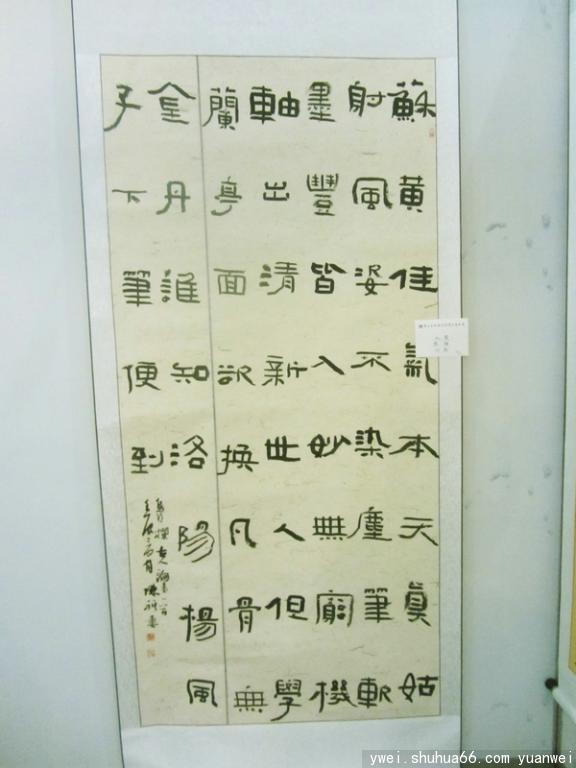 蘇黃佳氣本天眞姑
射風姿不染塵筆軟
墨豐皆入妙無窮機
軸出清新世人但學
蘭亭面欲換凡骨無
金丹誰知洛陽楊風
子下筆便到
ywei.shuhua66.com yuanwei